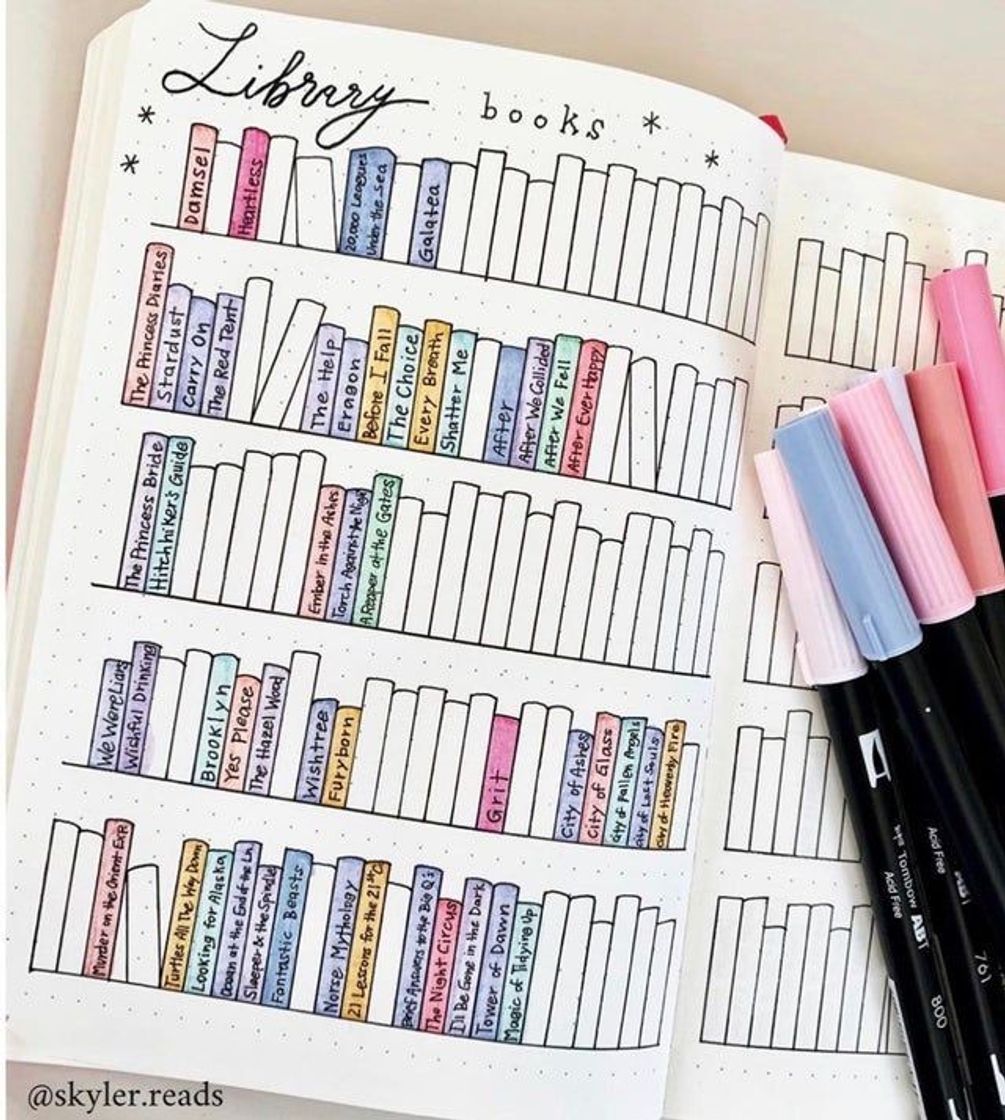 Library books
Damsel
Heartless
20,000 Leagues
Under the Sea
Galatea
The Princess Diaries
Stardust
Carry On
The Red Tent
The Help
Eragon
Before I Fall
The Choice
Every Breath
Shatter Me
After
After We Collided
After We Fell
After Ever Happy
The Princess Bride
Hitchhiker's Guide
Ember in the Ashes
Torch Against the Nigh
A Reaper at the Gates
We Were Liars
Wishful Drinking
Brooklyn
Yes Please
The Hazel Wood
Wishtree
Furyborn
Grit
City of Ashes
City of Glass
City of Fallen Angels
City of Lost Souls
City of Heavenly Fire
Murder on the Orient Exp.
Turtles All The Way Down
Looking for Alaska
Ocean at the End of the Ln
Sleeper & the Spindle
Fantastic Beasts
Norse Mythology
21 Lessons for the 21st C
Brief Answers to the Big Q's
The Night Circus
I'll Be Gone in the Dark
Tower of Dawn
Magic of Tidying Up
Tombow ABT
Acid Free
800
Acid Free
761
@skyler.reads